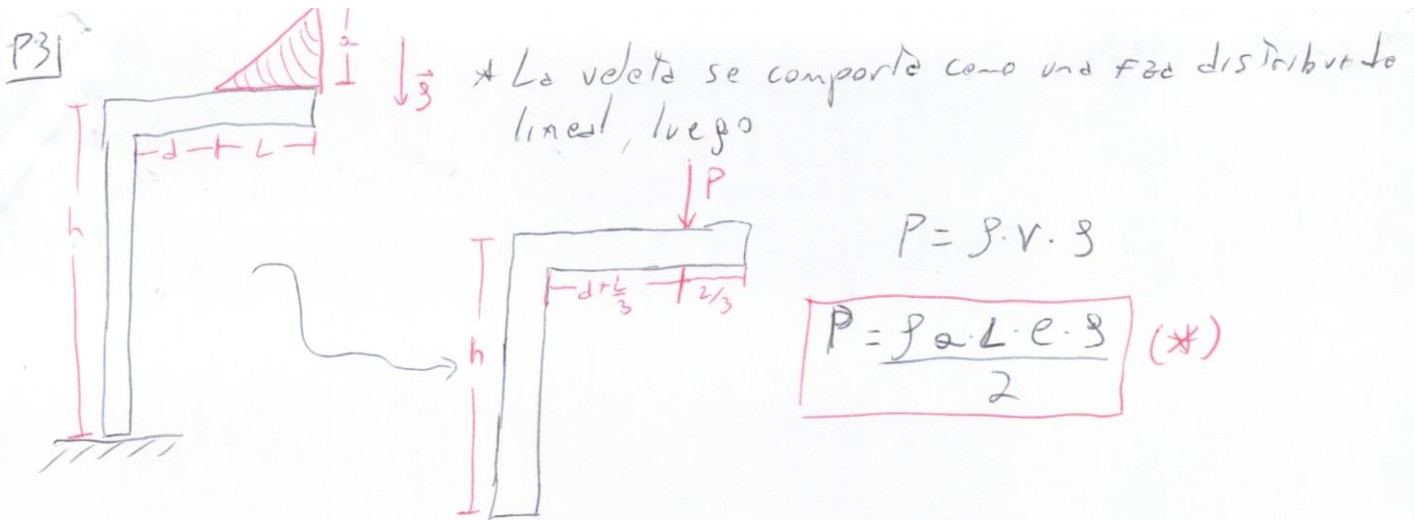 P3|
a
g
* La veleta se comporta como una fza distribuida
lineal, luego
d L
h
P
P = ρ·V·g
d+L/3 L/3
h
P = ρ a·L·e·g / 2 (*)